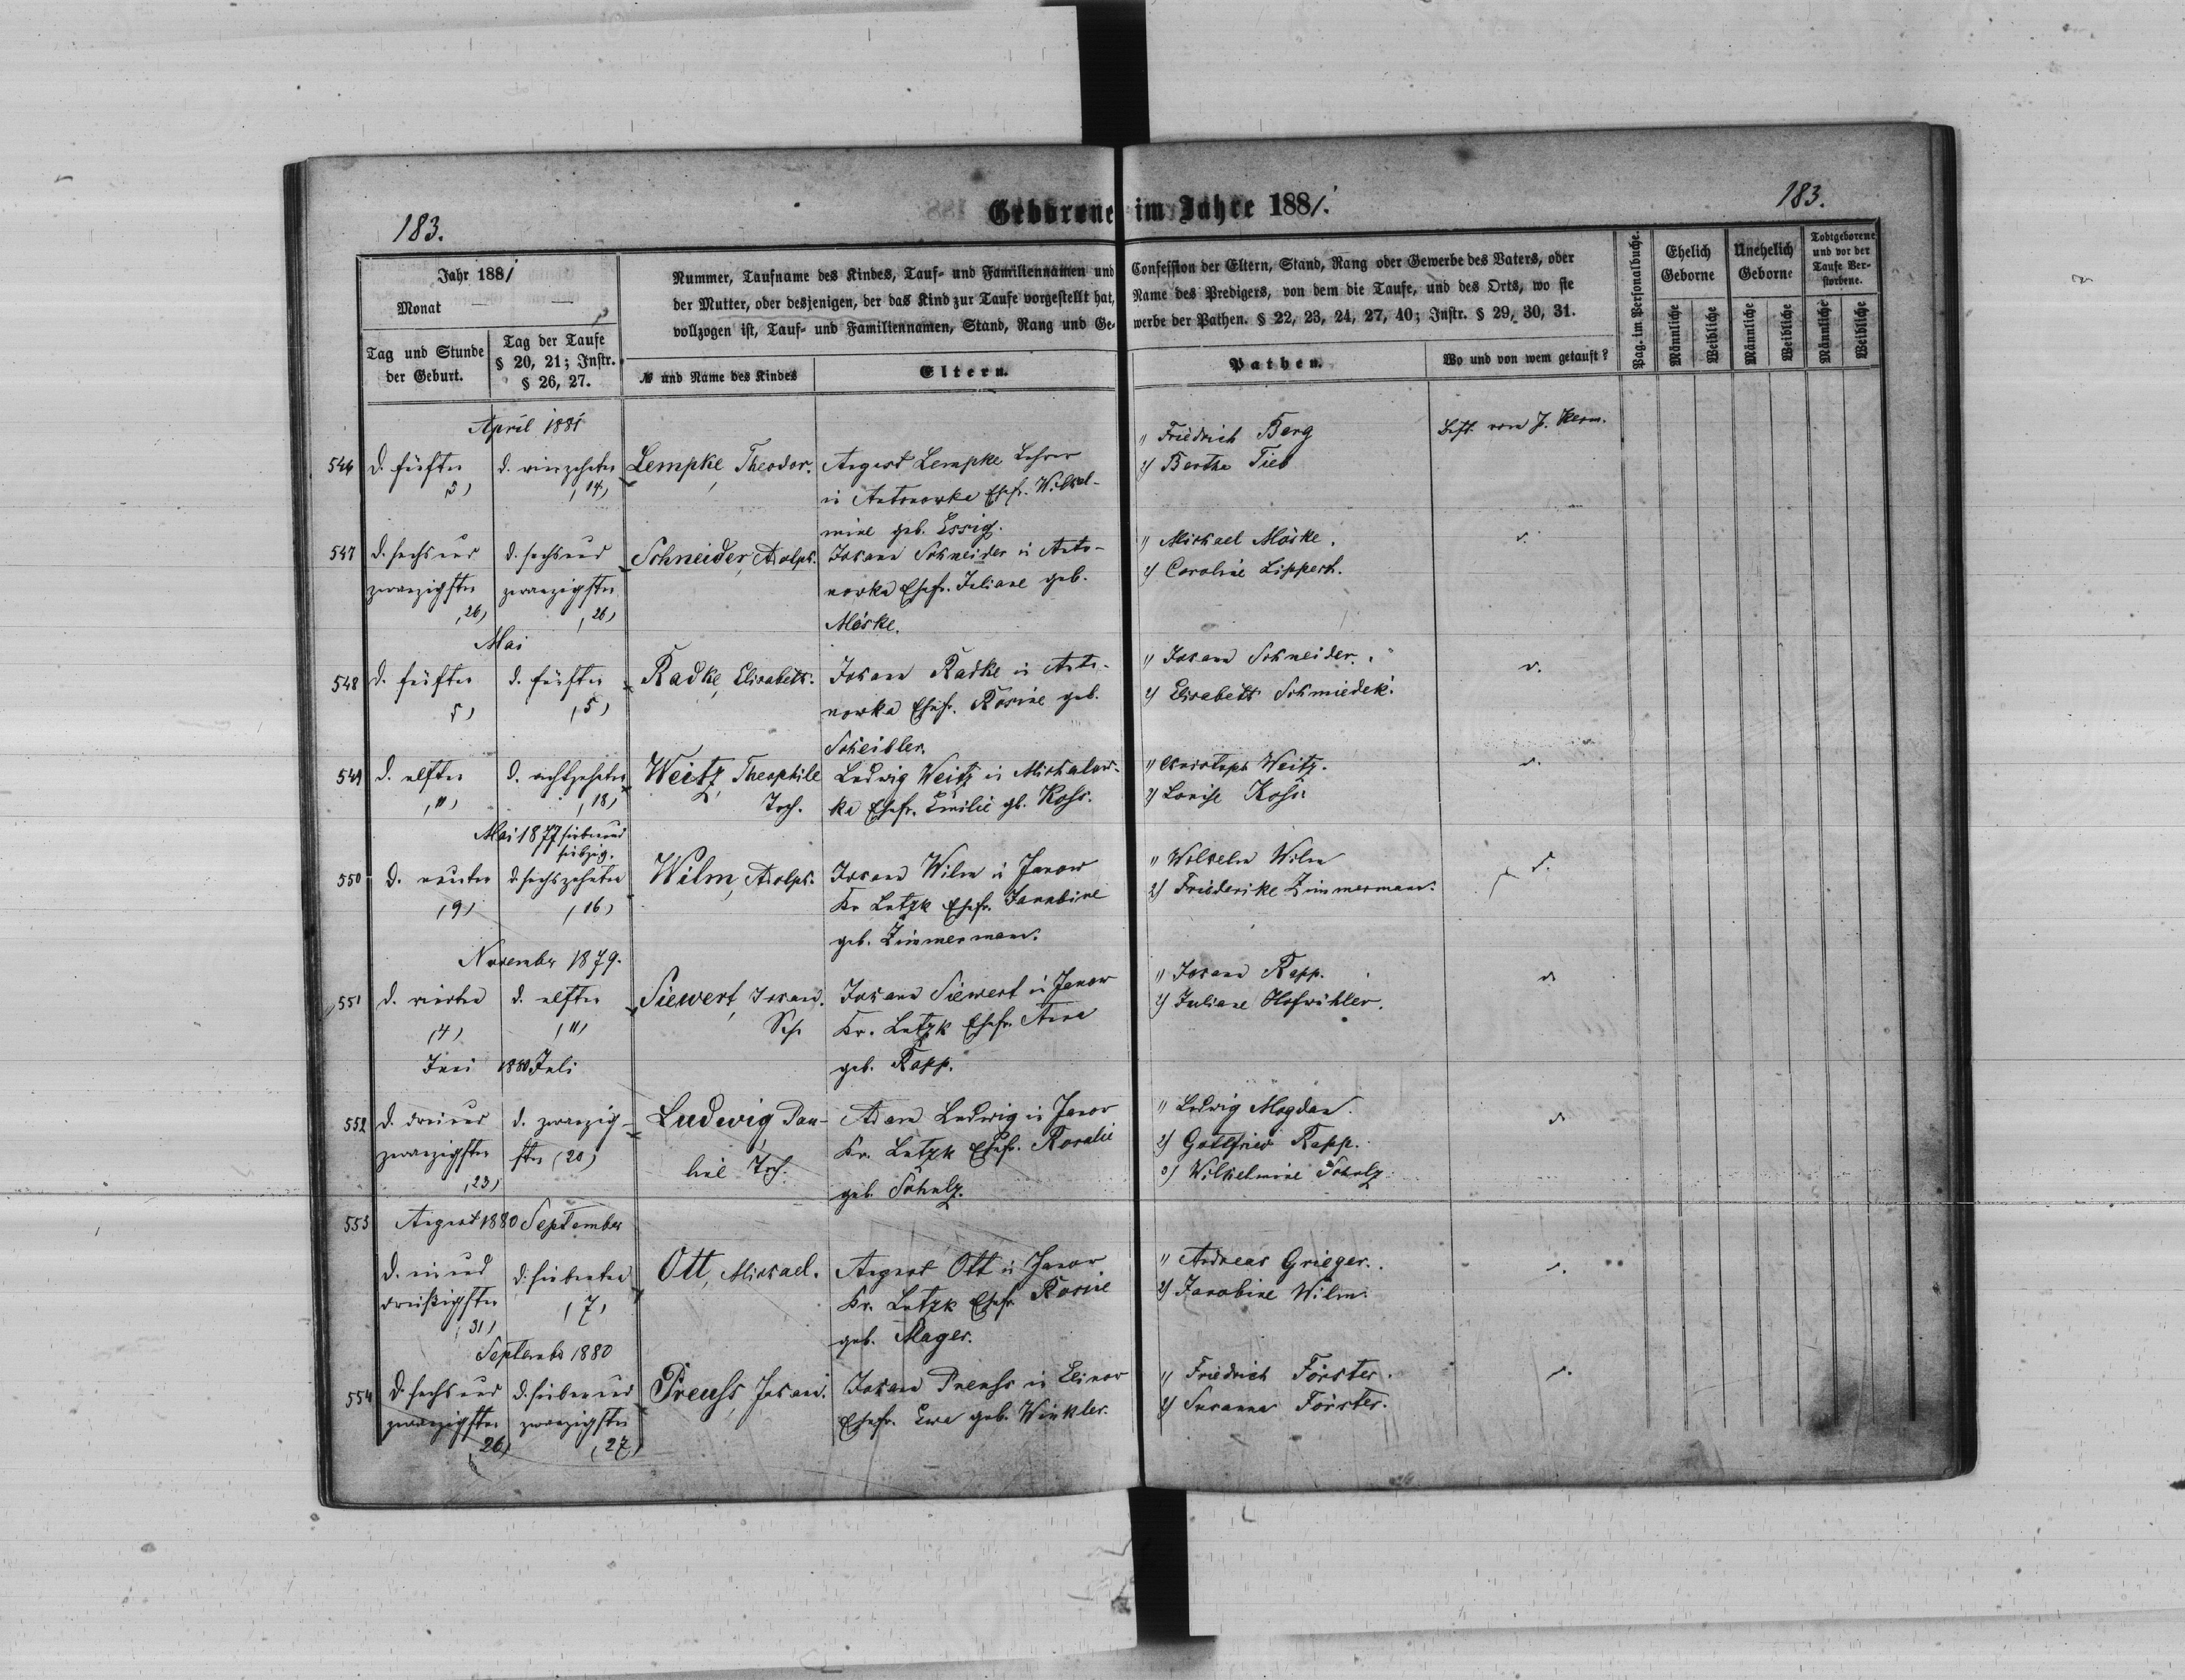 183.
Geborene im Jahre 1881.
183.
Jahr 1881
Monat
Tag und Stunde
der Geburt.
Tag der Taufe
§ 20, 21; Instr.
§ 26, 27.
Nummer, Taufname des Kindes, Tauf- und Familiennamen und
der Mutter, oder desjenigen, der das Kind zur Taufe vorgestellt hat,
vollzogen ist, Tauf- und Familiennamen, Stand, Rang und Ge-
№ und Name des Kindes
Eltern.
Confession der Eltern, Stand, Rang oder Gewerbe des Vaters, oder
Name des Predigers, von dem die Taufe, und des Orts, wo sie
werbe der Pathen. § 22, 23, 24, 27, 40; Instr. § 29, 30, 31.
Pathen.
Wo und von wem getauft?
Pag. im Personalbuche.
Ehelich
Geborne
Unehelich
Geborne
Todtgeborene
und vor der
Taufe Ver-
storbene.
Männliche
Weibliche
Männliche
Weibliche
Männliche
Weibliche
April 1881
546
d. fünften
(5)
d. vierzehnten
(14)
Lempke, Theodor.
August Lempke Lehrer
in Antonowka Ehefr. Wilhel-
mine geb. Essig.
1) Friedrich Berg
2) Bertha Tieb
Best. von J. Kern.
547
d. sechs und
zwanzigsten
(26)
d. sechs und
zwanzigsten
(26)
Schneider, Adolph.
Johann Schneider in Anto-
nowka Ehefr. Juliane geb.
Möske.
1) Michael Möske.
2) Caroline Lippert.
d.
Mai
548
d. fünften
5)
d. fünften
(5)
Radke, Elisabeth.
Johann Radke in Anto-
nowka Ehefr. Rosine geb.
Scheibler.
1) Johann Schneider.
2) Elisabeth Schmiedek.
d.
549
d. elften
(11)
d. achtzehnten
(18)
Weitz, Theophile
Toch.
Ludwig Weitz in Michalow-
ka Ehefr. Emilie gb. Koss.
1) Christoph Weitz.
2) Louise Koss.
d.
Mai 1877 siebenund
siebzig.
550
d. neunten
(9)
d. sechszehnten
(16)
Wilm, Adolph.
Johann Wilm in Janow
Kr. Lutzk Ehefr. Jakobine
geb. Zimmermann.
1) Wilhelm Wilm
2) Friederike Zimmermann.
d.
November 1879.
551
d. vierten
(4)
d. elften
(11)
Siewert, Johann.
Sohn
Johann Siewert in Janow
Kr. Lutzk Ehefr. Anna
geb. Rapp.
1) Johann Rapp.
2) Juliane Hofwihler.
d.
Juni 1880 Juli
552
d. drei und
zwanzigsten
(23)
d. zwanzig-
sten (20)
Ludwig, Pau-
line Toch.
Adam Ludwig in Janow
Kr. Lutzk Ehefr. Rosalie
geb. Schulz.
1) Ludwig Magdan.
2) Gottfried Rapp.
3) Wilhelmine Schulz.
d.
553
August 1880 September
d. ein und
dreißigsten
(31)
d. siebenten
(7)
Ott, Michael.
August Ott in Janow
Kr. Lutzk Ehefr. Rosine
geb. Mager.
1) Andreas Grieger.
2) Jakobine Wilm.
d.
September 1880
554
d. sechs und
zwanzigsten
26)
d. sieben und
zwanzigsten
(27)
Preuss, Johann.
Johann Preuss in Elinow
Ehefr. Ewa geb. Winkler.
1) Friedrich Förster.
2) Susanna Förster.
d.